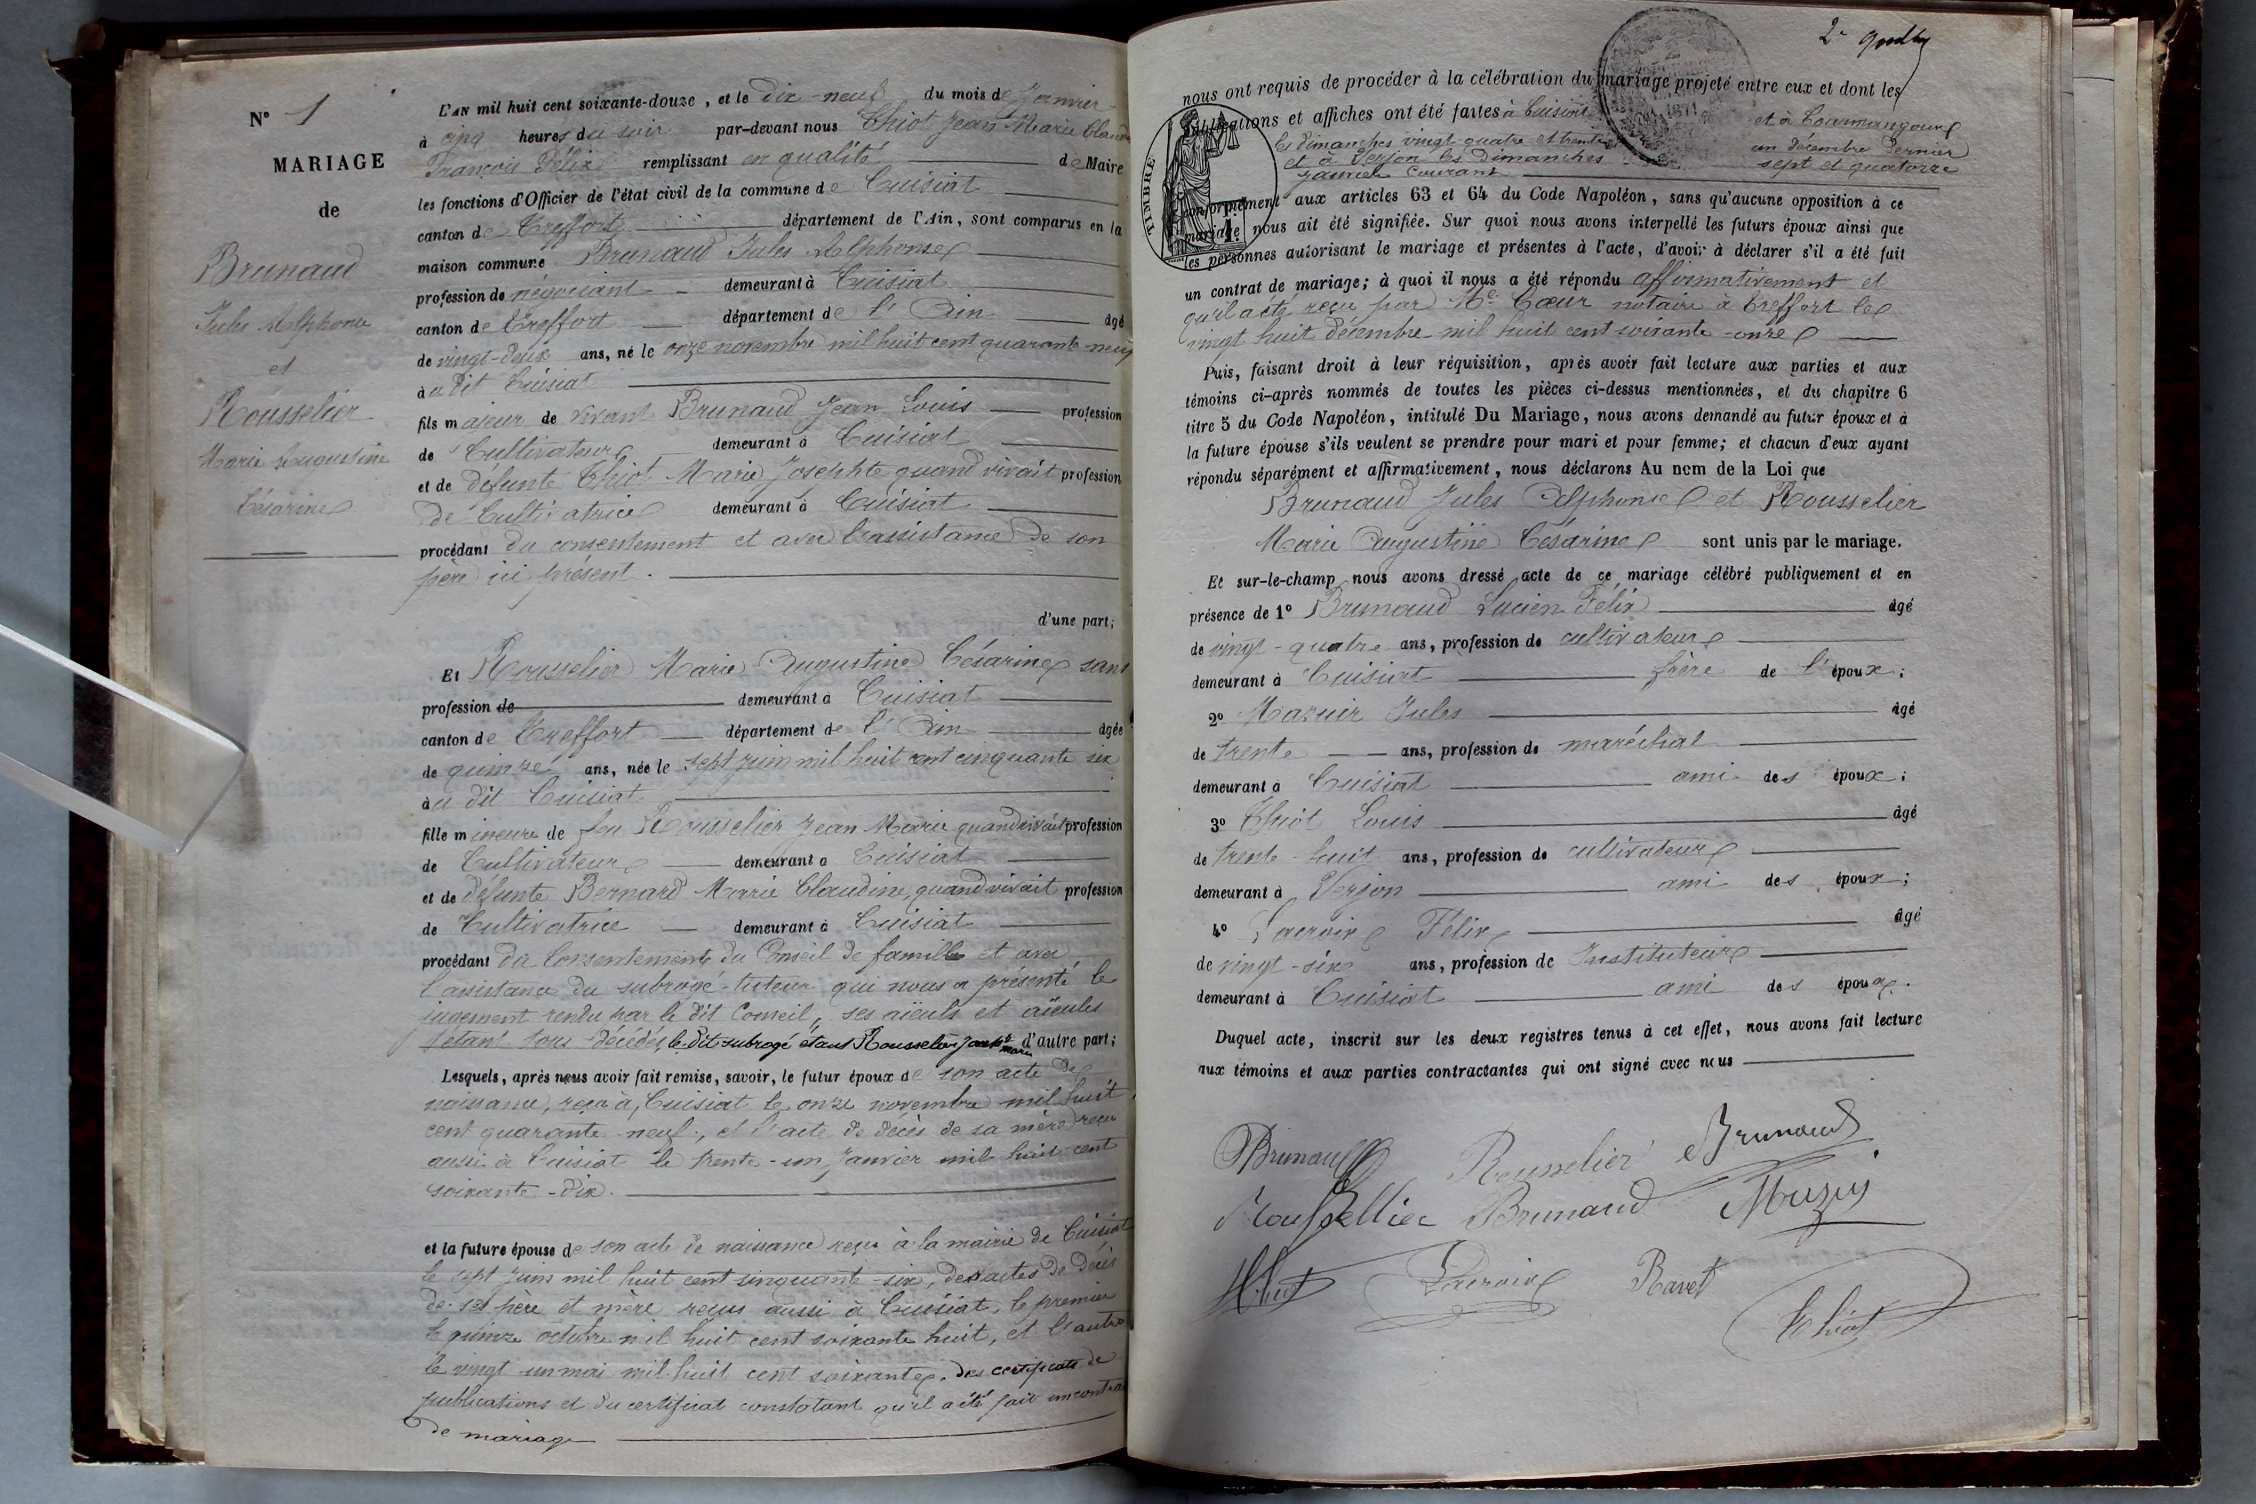 N° 1
MARIAGE
de
Brunaud
Jules Alphonse
et
Rousselier
Marie Augustine
Césarine
L'AN mil huit cent soixante-douze, et le dix-neuf du mois de Janvier
à cinq heures du soir par-devant nous Thiot Jean Marie Claude
François Félix remplissant en qualité de Maire
les fonctions d'Officier de l'état civil de la commune de Cuisiat
canton de Treffort département de l'Ain, sont comparus en la
maison commune Brunaud Jules Alphonse
profession de négociant demeurant à Cuisiat
canton de Treffort département de l'Ain âgé
de vingt-deux ans, né le onze novembre mil huit cent quarante-neuf
à u dit Cuisiat
fils majeur de vivant Brunaud Jean Louis profession
de Cultivateur demeurant à Cuisiat
et de défunte Thiot Marie Josephte quand vivait profession
de Cultivatrice demeurant à Cuisiat
procédant du consentement et avec l'assistance de son
père ici présent.
d'une part;
Et Rousselier Marie Augustine Césarine sans
profession de demeurant à Cuisiat
canton de Treffort département de l'Ain âgée
de quinze ans, née le sept juin mil huit cent cinquante six
à u dit Cuisiat
fille mineure de feu Rousselier Jean Marie quand vivait profession
de Cultivateur demeurant à Cuisiat
et de défunte Bernard Marie Claudine, quand vivait profession
de Cultivatrice demeurant à Cuisiat
procédant du Consentement du Conseil de famille et avec
l'assistance du subrogé-tuteur qui nous a présenté le
jugement rendu par le dit Conseil, ses aïeuls et aïeules
étant tous décédés, le dit subrogé étant Rousselier d'autre part;
Lesquels, après nous avoir fait remise, savoir, le futur époux de son acte de
naissance, reçu à Cuisiat le onze novembre mil huit
cent quarante-neuf, et l'acte de décès de sa mère reçu
aussi à Cuisiat le trente-un Janvier mil huit cent
soixante-dix.
et la future épouse de son acte de naissance reçu à la mairie de Cuisiat
le sept juin mil huit cent cinquante-six, des actes de décès
de ses père et mère reçus aussi à Cuisiat, le premier
le quinze octobre mil huit cent soixante huit, et l'autre
le vingt-un mai mil huit cent soixante. des certificats de
publications et du certificat constatant qu'il a été fait un contrat
de mariage
nous ont requis de procéder à la célébration du mariage projeté entre eux et dont les
publications et affiches ont été faites à Cuisiat et à
les dimanches vingt quatre et trente un décembre dernier
et à Verjon les Dimanches sept et quatorze
Janvier courant
TIMBRE
conformément aux articles 63 et 64 du Code Napoléon, sans qu'aucune opposition à ce
mariage nous ait été signifiée. Sur quoi nous avons interpellé les futurs époux ainsi que
les personnes autorisant le mariage et présentes à l'acte, d'avoir à déclarer s'il a été fait
un contrat de mariage; à quoi il nous a été répondu affirmativement et
qu'il a été reçu par Me Cœur notaire à Treffort le
vingt huit décembre mil huit cent soixante-onze
Puis, faisant droit à leur réquisition, après avoir fait lecture aux parties et aux
témoins ci-après nommés de toutes les pièces ci-dessus mentionnées, et du chapitre 6
titre 5 du Code Napoléon, intitulé Du Mariage, nous avons demandé au futur époux et à
la future épouse s'ils veulent se prendre pour mari et pour femme; et chacun d'eux ayant
répondu séparément et affirmativement, nous déclarons Au nom de la Loi que
Brunaud Jules Alphonse et Rousselier
Marie Augustine Césarine sont unis par le mariage.
Et sur-le-champ nous avons dressé acte de ce mariage célébré publiquement et en
présence de 1° Brunaud Lucien Félix âgé
de vingt-quatre ans, profession de cultivateur
demeurant à Cuisiat frère de l'époux;
2° Mazuir Jules âgé
de trente ans, profession de maréchal
demeurant à Cuisiat ami des époux;
3° Thiot Louis âgé
de trente-huit ans, profession de cultivateur
demeurant à Verjon ami des époux;
4° Lacroix Félix âgé
de vingt-six ans, profession de Instituteur
demeurant à Cuisiat ami des époux.
Duquel acte, inscrit sur les deux registres tenus à cet effet, nous avons fait lecture
aux témoins et aux parties contractantes qui ont signé avec nous
Brunaud Rousselier Brunaud
Rousselier Brunaud Mazuir
Thiot Lacroix Ravet
Thiot